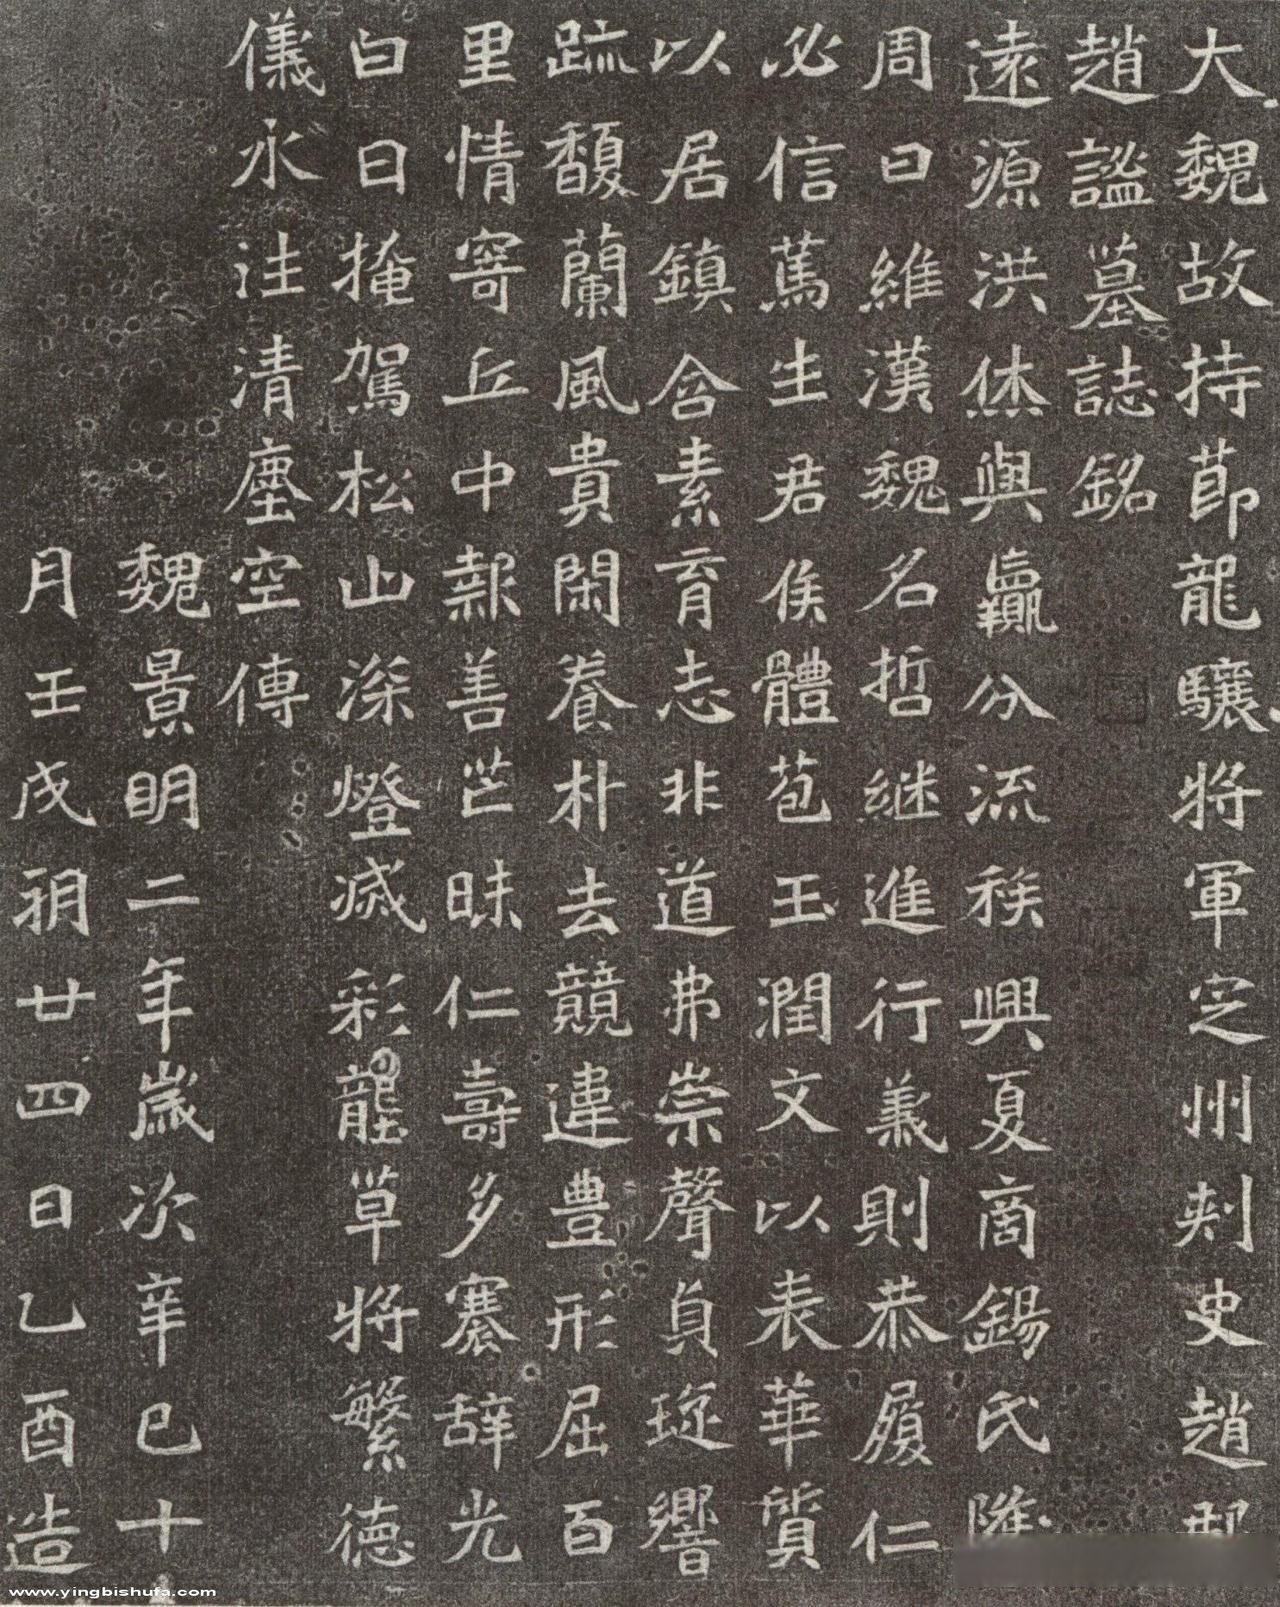 大魏故持節龍驤將軍定州刾史趙郡
趙謐墓誌銘
遠源洪休與嬴分流族興夏商錫氏隆
周曰維漢魏名哲継進行義則恭履仁
必信篤生君侯體苞玉潤文以表華質
以居鎮含素育志非道弗崇聲貞琁響
疏馥蘭風貴閑養朴去競違豊形屈百
里情寄丘中報善芒昧仁壽多褰辞光
白日掩駕松山深燈滅彩壟草將繁德
儀永注清塵空傳
魏景明二年歲次辛巳十
月壬戌朔廿四日乙酉造
www.yingbishufa.com